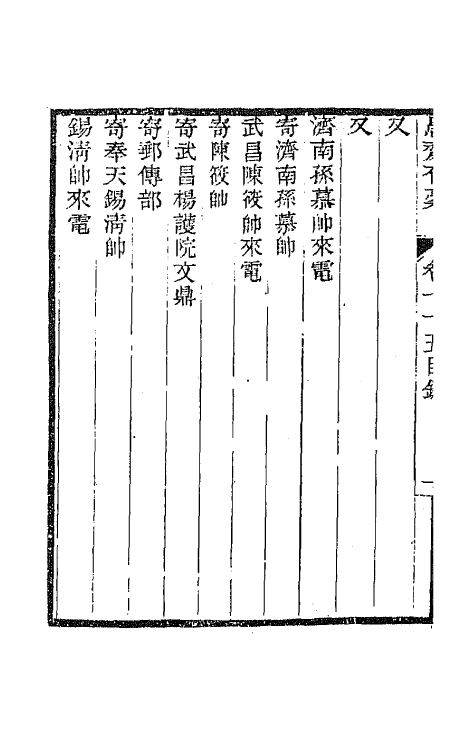 愚齋存稾
卷 五目錄
一
又
又
濟南孫慕帥來電
寄濟南孫慕帥
武昌陳筱帥來電
寄陳筱帥
寄武昌楊護院文鼎
寄郵傳部
寄奉天錫淸帥
錫淸帥來電